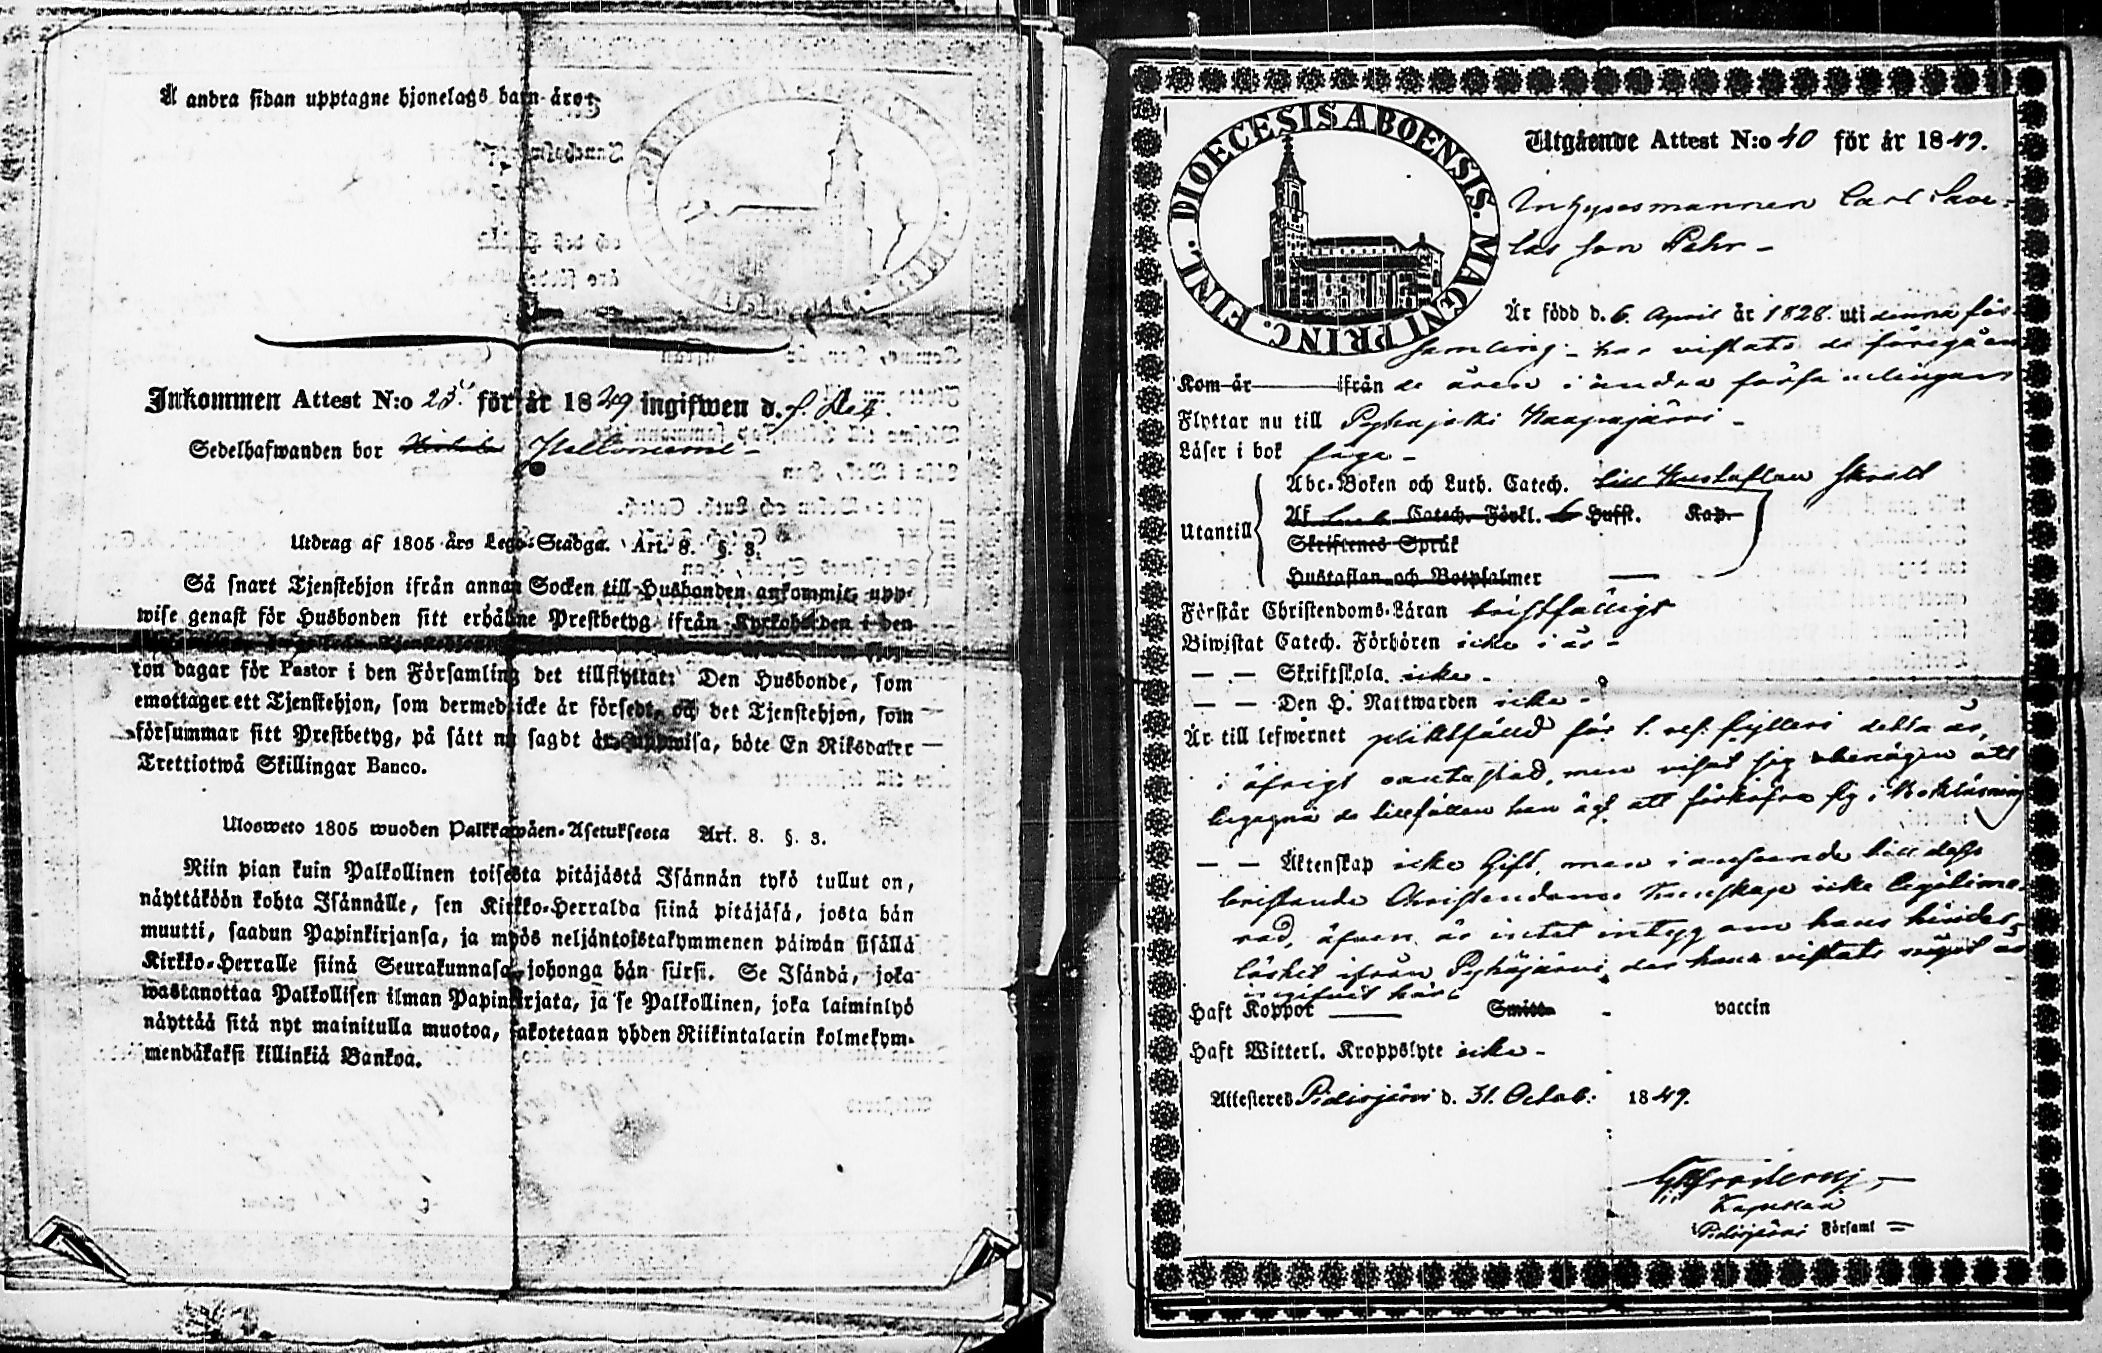 Å andra sidan upptagne hjonelags barn äro:
Inkommen Attest N:o 25 för år 1849 ingifwen d.
Sedelhafwanden bor
Utdrag af 1805 års Lego-Stadga. Art. 8. §. 3.
Så snart Tjenstehjon ifrån annan Socken till Husbonden ankommit, upp-
wise genast för Husbonden sitt erhållne Prestbetyg ifrån Kyrkoherden i den
ton dagar för Pastor i den Församling det tillflyttat; Den Husbonde, som
emottager ett Tjenstehjon, som dermed icke är försedt, och det Tjenstehjon, som
försummar sitt Prestbetyg, på sätt nu sagdt är, uppwisa, böte En Riksdaler
Trettiotwå Skillingar Banco.
Ulosweto 1805 wuoden Palkkawäen-Asetuksesta Art. 8. §. 3.
Niin pian kuin Palkollinen toisesta pitäjästä Isännän tykö tullut on,
näyttäköön kohta Isännälle, sen Kirkko-Herralda siinä pitäjäsä, josta hän
muutti, saadun Papinkirjansa, ja myös neljäntoistakymmenen päiwän sisällä
Kirkko-Herralle siinä Seurakunnasa, johonga hän siirsi. Se Isändä, joka
wastanottaa Palkollisen ilman Papinkirjata, ja se Palkollinen, joka laiminlyö
näyttää sitä nyt mainitulla muotoa, sakotetaan yhden Riikintalarin kolmekym-
mendäkaksi killinkiä Bankoa.
DIOECESIS ABOENSIS. MAGNI PRINC. FINL.
Utgående Attest N:o 40 för år 1849.
Inhysesmannen Carl
son Pehr -
Är född d. 6. April år 1828. uti denna för-
samling - har vistats de föregåen
Kom år ifrån de åren i andra församlingar
Flyttar nu till Pyhäjoki Haapajärvi -
Läser i bok
Abc-Boken och Luth. Catech. till Hustaflan
Utantill Af Catech. Förkl. Hufst. Kap.
Skriftenes Språk
Hustaflan och Botpsalmer
Förstår Christendoms-Läran bristfälligt
Biwistat Catech. Förhören icke i år -
— — Skriftskola icke -
— — Den H. Nattwarden icke -
Är till lefwernet pliktfälld för 1. res. fylleri detta år,
i öfrigt oantastad, men visat sig obenägen att
begagna de tillfällen han ägt att förkofra sig i Bokläsning
— — Äktenskap icke Gift, men i anseende till dess
bristande Christendoms kunskap icke legitime-
rad, äfven är intet intyg om hans hinder-
löshet ifrån Pyhäjärvi, der han vistats något år
ingifvit här
Haft Koppor — Smitt- vaccin
Haft Witterl. Kroppslyte icke -
Attesteres Pidisjärvi d. 31. Octob: 1849.
Kapellan
i Pidisjärvi Församl